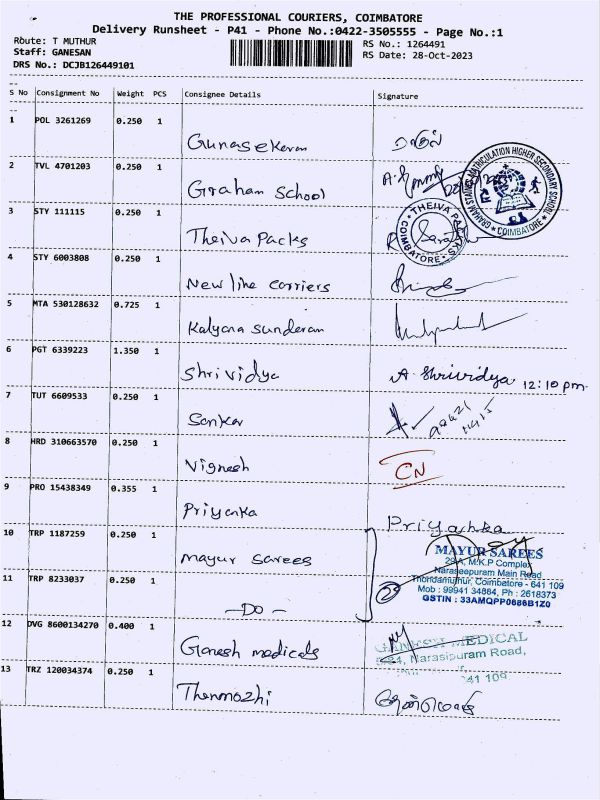 THE PROFESSIONAL COURIERS, COIMBATORE
Delivery Runsheet - P41 - Phone No.:0422-3505555 - Page No.:1
Route: T MUTHUR
RS No.: 1264491
Staff: GANESAN
RS Date: 28-Oct-2023
DRS No.: DCJB126449101
S No Consignment No Weight PCS Consignee Details Signature
1 POL 3261269 0.250 1
Gunasekeran
2 TVL 4701203 0.250 1
Graham School
MATRICULATION HIGHER SECONDARY SCHOOL
COIMBATORE
3 STY 111115 0.250 1
Theiva Packs
THEIVA PACKS
COIMBATORE
4 STY 6003808 0.250 1
New line carriers
5 MTA 530128632 0.725 1
Kalyana sunderam
6 PGT 6339223 1.350 1
Shrividya A. Shrividya 12:10 pm
7 TUT 6609533 0.250 1
Sankar
8 HRD 310663570 0.250 1
Vignesh CN
9 PRO 15438349 0.355 1
Priyanka Priyahka
10 TRP 1187259 0.250 1
Mayur Sarees
MAYUR SAREES
M.K.P Complex
Naraseepuram Main Road
Thondamuthur, Coimbatore - 641 109
Mob : 99941 34884, Ph : 2618373
GSTIN : 33AMQPP0686B1Z0
11 TRP 8233037 0.250 1
- DO - 2
12 DVG 8600134270 0.400 1
Ganesh medicals
GANESH MEDICAL
Narasipuram Road,
41 109
13 TRZ 120034374 0.250 1
Thenmozhi தேன்மொழி